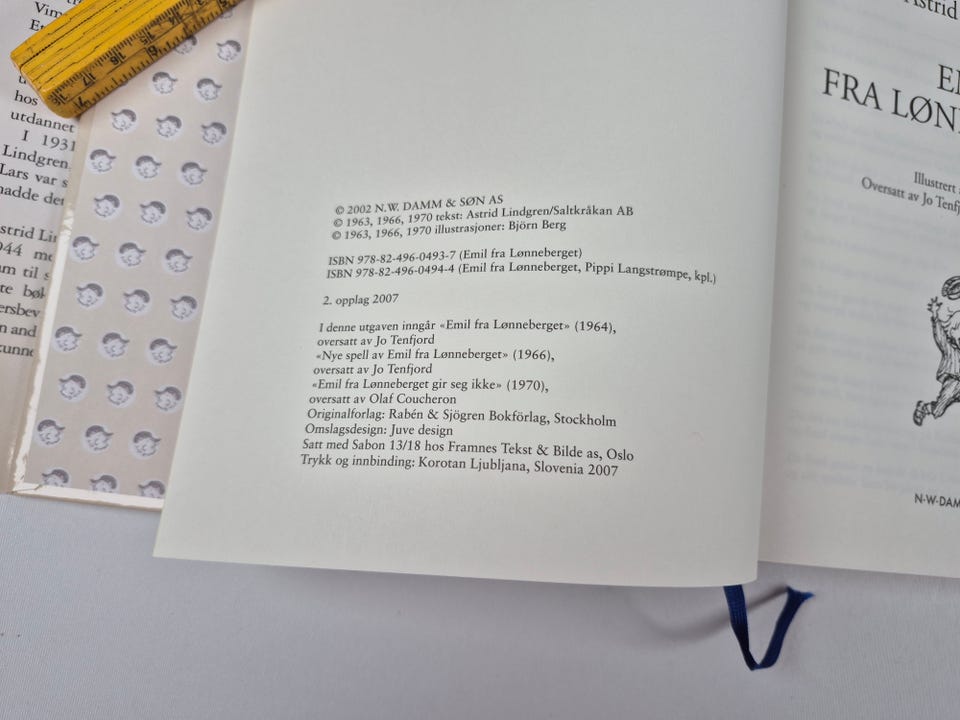 Vim
Et
hos
utdannet
I 1931
Lindgren.
Lars var s
hadde det
strid Li
944 me
um til s
te bøk
ersbev
n and
kunne
© 2002 N.W. DAMM & SØN AS
© 1963, 1966, 1970 tekst: Astrid Lindgren/Saltkråkan AB
© 1963, 1966, 1970 illustrasjoner: Björn Berg
ISBN 978-82-496-0493-7 (Emil fra Lønneberget)
ISBN 978-82-496-0494-4 (Emil fra Lønneberget, Pippi Langstrømpe, kpl.)
2. opplag 2007
I denne utgaven inngår «Emil fra Lønneberget» (1964),
oversatt av Jo Tenfjord
«Nye spell av Emil fra Lønneberget» (1966),
oversatt av Jo Tenfjord
«Emil fra Lønneberget gir seg ikke» (1970),
oversatt av Olaf Coucheron
Originalforlag: Rabén & Sjögren Bokförlag, Stockholm
Omslagsdesign: Juve design
Satt med Sabon 13/18 hos Framnes Tekst & Bilde as, Oslo
Trykk og innbinding: Korotan Ljubljana, Slovenia 2007
Astrid
E
FRA LØN
Illustrert
Oversatt av Jo Tenfj
N·W·DAM